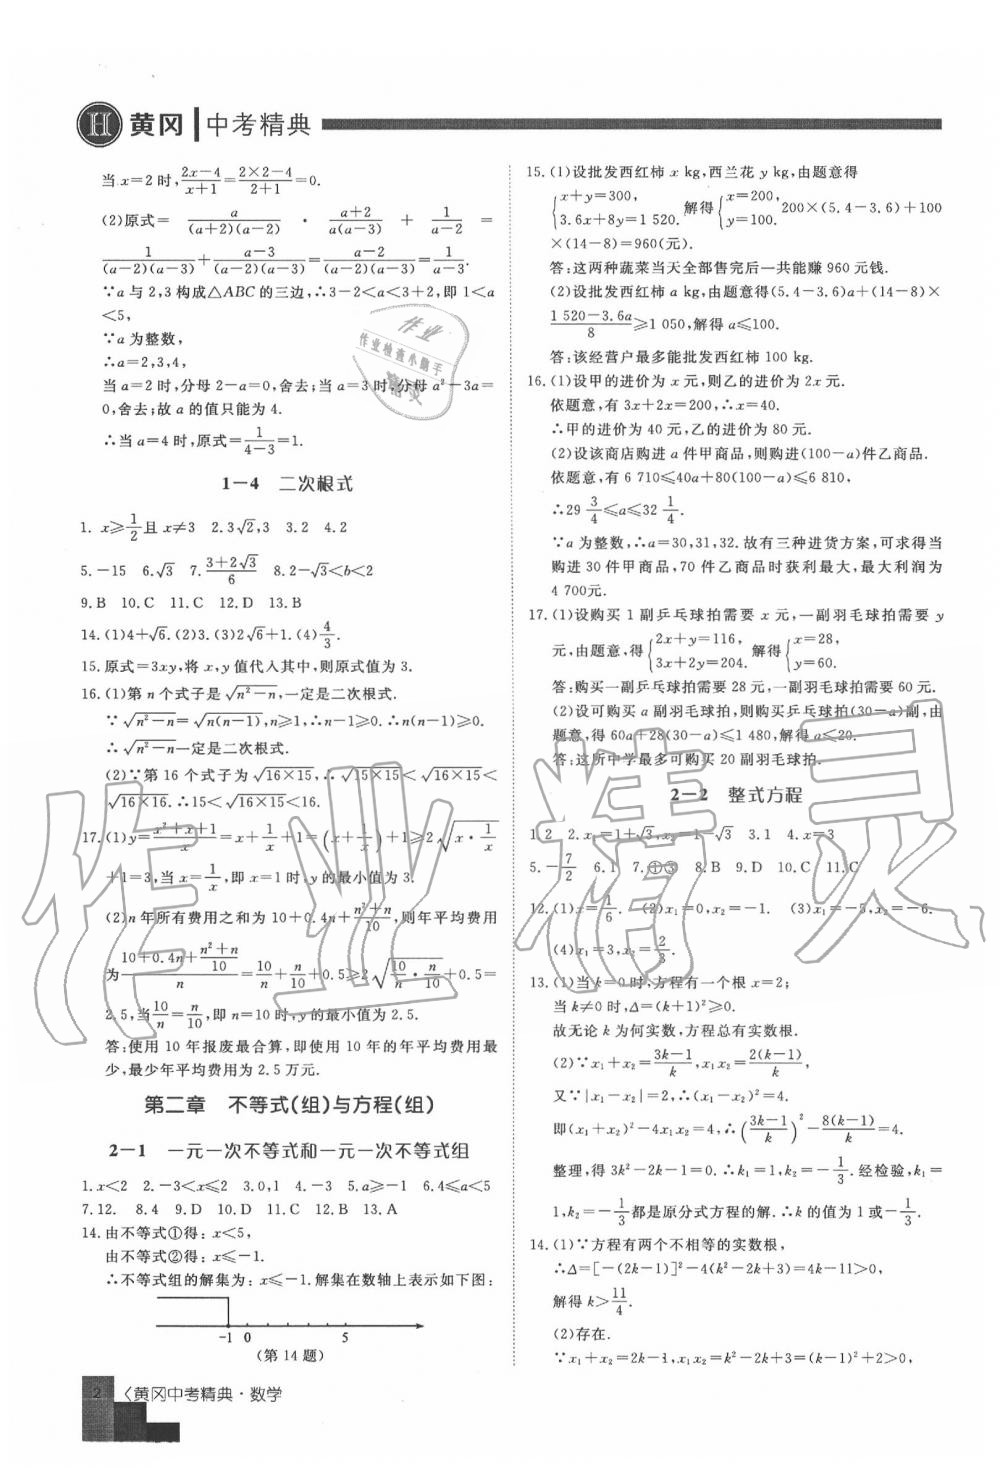 H 黄冈 | 中考精典
当 x=2 时,(2x-4)/(x+1)=(2×2-4)/(2+1)=0.
(2)原式= a/((a+2)(a-2)) · (a+2)/(a(a-3)) + 1/(a-2) =
1/((a-2)(a-3))+(a-3)/((a-2)(a-3))=(a-2)/((a-2)(a-3))=1/(a-3).
∵a 与 2,3 构成△ABC 的三边,∴3-2<a<3+2,即 1<a
<5,
∵a 为整数,
∴a=2,3,4,
当 a=2 时,分母 2-a=0,舍去;当 a=3 时,分母 a²-3a=
0,舍去;故 a 的值只能为 4.
∴当 a=4 时,原式=1/(4-3)=1.
1-4 二次根式
1. x≥1/2且 x≠3 2.3√2,3 3.2 4.2
5.-15 6.√3 7.(3+2√3)/6 8.2-√3<b<2
9.B 10.C 11.C 12.D 13.B
14.(1)4+√6.(2)3.(3)2√6+1.(4)4/3.
15.原式=3xy,将 x,y 值代入其中,则原式值为 3.
16.(1)第 n 个式子是 √(n²-n),一定是二次根式.
∵√(n²-n)=√(n(n-1)),n≥1,∴n-1≥0.∴n(n-1)≥0.
∴√(n²-n)一定是二次根式.
(2)∵第 16 个式子为√(16×15),∴√(15×15)<√(16×15)<
√(16×16).∴15<√(16×15)<16.
17.(1)y=(x²+x+1)/x=x+1/x+1=(x+1/x)+1≥2√(x·1/x)
+1=3,当 x=1/x,即 x=1 时,y 的最小值为 3.
(2)n 年所有费用之和为 10+0.4n+(n²+n)/10,则年平均费用
为(10+0.4n+(n²+n)/10)/n=10/n+n/10+0.5≥2√(10/n·n/10)+0.5=
2.5,当10/n=n/10,即 n=10 时,y 的最小值为 2.5.
答:使用 10 年报废最合算,即使用 10 年的年平均费用最
少,最少年平均费用为 2.5 万元.
第二章 不等式(组)与方程(组)
2-1 一元一次不等式和一元一次不等式组
1.x<2 2.-3<x≤2 3.0,1 4.-3 5.a≥-1 6.4≤a<5
7.12. 8.4 9.D 10.D 11.C 12.B 13.A
14.由不等式①得: x<5,
由不等式②得: x≤-1.
∴不等式组的解集为: x≤-1.解集在数轴上表示如下图:
-1 0 5
(第 14 题)
2 〈黄冈中考精典·数学
15.(1)设批发西红柿 x kg,西兰花 y kg,由题意得
{x+y=300, 3.6x+8y=1 520. 解得{x=200, y=100. 200×(5.4-3.6)+100
×(14-8)=960(元).
答:这两种蔬菜当天全部售完后一共能赚 960 元钱.
(2)设批发西红柿 a kg,由题意得(5.4-3.6)a+(14-8)×
(1 520-3.6a)/8≥1 050,解得 a≤100.
答:该经营户最多能批发西红柿 100 kg.
16.(1)设甲的进价为 x 元,则乙的进价为 2x 元.
依题意,有 3x+2x=200,∴x=40.
∴甲的进价为 40 元,乙的进价为 80 元.
(2)设该商店购进 a 件甲商品,则购进(100-a)件乙商品.
依题意,有 6 710≤40a+80(100-a)≤6 810,
∴29 3/4≤a≤32 1/4.
∵a 为整数,∴a=30,31,32.故有三种进货方案,可求得当
购进 30 件甲商品,70 件乙商品时获利最大,最大利润为
4 700元.
17.(1)设购买 1 副乒乓球拍需要 x 元,一副羽毛球拍需要 y
元,由题意,得{2x+y=116, 3x+2y=204. 解得{x=28, y=60.
答:购买一副乒乓球拍需要 28 元,一副羽毛球拍需要 60 元.
(2)设可购买 a 副羽毛球拍,则购买乒乓球拍(30-a)副,由
题意,得 60a+28(30-a)≤1 480,解得 a≤20.
答:这所中学最多可购买 20 副羽毛球拍.
2-2 整式方程
1.2 2.x₁=1+√3,x₂=1-√3 3.1 4.x=3
5.-7/2 6.1 7.①③ 8.B 9.D 10.C 11.C
12.(1)x=1/6. (2)x₁=0,x₂=-1. (3)x₁=-5,x₂=-6.
(4)x₁=3,x₂=2/3.
13.(1)当 k=0 时,方程有一个根 x=2;
当 k≠0 时,Δ=(k+1)²≥0.
故无论 k 为何实数,方程总有实数根.
(2)∵x₁+x₂=(3k-1)/k,x₁x₂=2(k-1)/k,
又∵|x₁-x₂|=2,∴(x₁-x₂)²=4.
即(x₁+x₂)²-4x₁x₂=4,∴((3k-1)/k)²-8(k-1)/k=4.
整理,得 3k²-2k-1=0.∴k₁=1,k₂=-1/3.经检验,k₁=
1,k₂=-1/3都是原分式方程的解.∴k 的值为 1 或-1/3.
14.(1)∵方程有两个不相等的实数根,
∴Δ=[-(2k-1)]²-4(k²-2k+3)=4k-11>0,
解得 k>11/4.
(2)存在.
∵x₁+x₂=2k-1,x₁x₂=k²-2k+3=(k-1)²+2>0,
作业
作业检查小助手
作业精灵